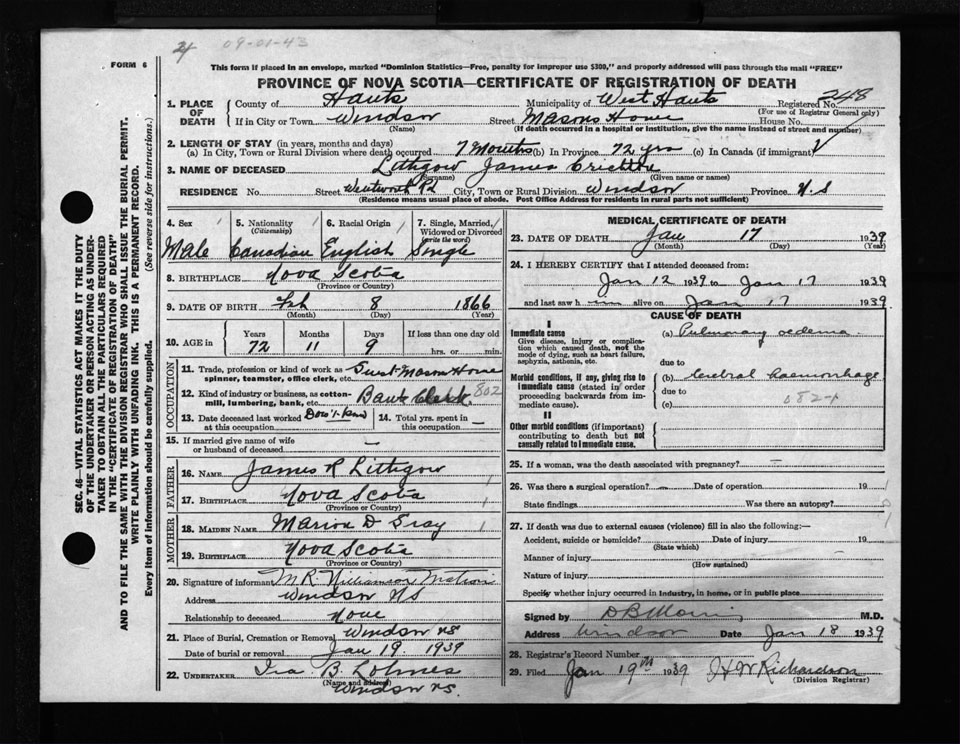 4 09-01-43
FORM 6
This form if placed in an envelope, marked "Dominion Statistics—Free, penalty for improper use $300," and properly addressed will pass through the mail "FREE"
PROVINCE OF NOVA SCOTIA—CERTIFICATE OF REGISTRATION OF DEATH
SEC. 46—VITAL STATISTICS ACT MAKES IT THE DUTY
OF THE UNDERTAKER OR PERSON ACTING AS UNDER-
TAKER TO OBTAIN ALL THE PARTICULARS REQUIRED
IN THE "CERTIFICATE OF REGISTRATION OF DEATH"
AND TO FILE THE SAME WITH THE DIVISION REGISTRAR WHO SHALL ISSUE THE BURIAL PERMIT.
WRITE PLAINLY WITH UNFADING INK. THIS IS A PERMANENT RECORD.
Every item of information should be carefully supplied. (See reverse side for instructions.)
1. PLACE OF DEATH County of Hants Municipality of West Hants Registered No. 248
(For use of Registrar General only)
If in City or Town Windsor Street Masons Home House No.
(Name) (If death occurred in a hospital or institution, give the name instead of street and number)
2. LENGTH OF STAY (in years, months and days)
(a) In City, Town or Rural Division where death occurred 7 Months (b) In Province 72 yrs (c) In Canada (if immigrant)
3. NAME OF DECEASED Lithgow James
(Surname) (Given name or names)
RESIDENCE No. Street Wentworth Rd City, Town or Rural Division Windsor Province N.S
(Residence means usual place of abode. Post Office Address for residents in rural parts not sufficient)
4. Sex 5. Nationality (Citizenship) 6. Racial Origin 7. Single, Married, Widowed or Divorced (write the word)
Male Canadian English Single
8. BIRTHPLACE Nova Scotia
(Province or Country)
9. DATE OF BIRTH Feb 8 1866
(Month) (Day) (Year)
10. AGE in Years Months Days If less than one day old
72 11 9 hrs. or min.
OCCUPATION
11. Trade, profession or kind of work as spinner, teamster, office clerk, etc. Guest Mason Home
12. Kind of industry or business, as cotton-mill, lumbering, bank, etc. Bank Clerk 802
13. Date deceased last worked at this occupation Don't know 14. Total yrs. spent in this occupation —
15. If married give name of wife or husband of deceased —
FATHER
16. NAME James R Lithgow
17. BIRTHPLACE Nova Scotia
(Province or Country)
MOTHER
18. MAIDEN NAME Marion D Gray
19. BIRTHPLACE Nova Scotia
(Province or Country)
20. Signature of informant M R Williamson Matron
Address Windsor NS
Relationship to deceased None
21. Place of Burial, Cremation or Removal Windsor NS
Date of burial or removal Jan 19 1939
22. UNDERTAKER Ira B. Lohnes
(Name and address) Windsor NS.
MEDICAL CERTIFICATE OF DEATH
23. DATE OF DEATH Jan 17 1939
(Month) (Day) (Year)
24. I HEREBY CERTIFY that I attended deceased from:
Jan 12 1939 to Jan 17 1939
and last saw h im alive on Jan 17 1939
CAUSE OF DEATH
I
Immediate cause (a) Pulmonary oedema
Give disease, injury or complication which caused death, not the mode of dying, such as heart failure, asphyxia, asthenia, etc.
due to
Morbid conditions, if any, giving rise to immediate cause (stated in order proceeding backwards from immediate cause).
(b) Cerebral haemorrhage
due to
(c)
II
Other morbid conditions (if important) contributing to death but not causally related to immediate cause.
25. If a woman, was the death associated with pregnancy? —
26. Was there a surgical operation? — Date of operation 19
State findings Was there an autopsy?
27. If death was due to external causes (violence) fill in also the following:—
Accident, suicide or homicide? Date of injury 19
(State which)
Manner of injury
(How sustained)
Nature of injury
Specify whether injury occurred in industry, in home, or in public place
Signed by M.D.
Address Windsor Date Jan 18 1939
28. Registrar's Record Number
29. Filed Jan 19th 1939 H W Richardson
(Division Registrar)